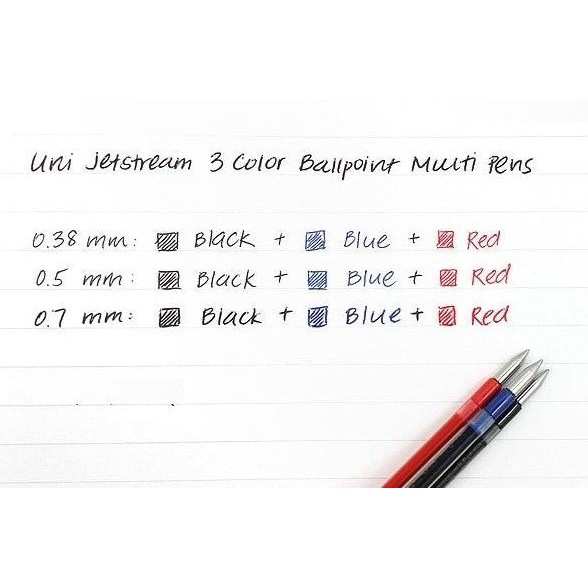 Uni Jetstream 3 Color Ballpoint Multi Pens
0.38 mm: Black + Blue + Red
0.5 mm: Black + Blue + Red
0.7 mm: Black + Blue + Red